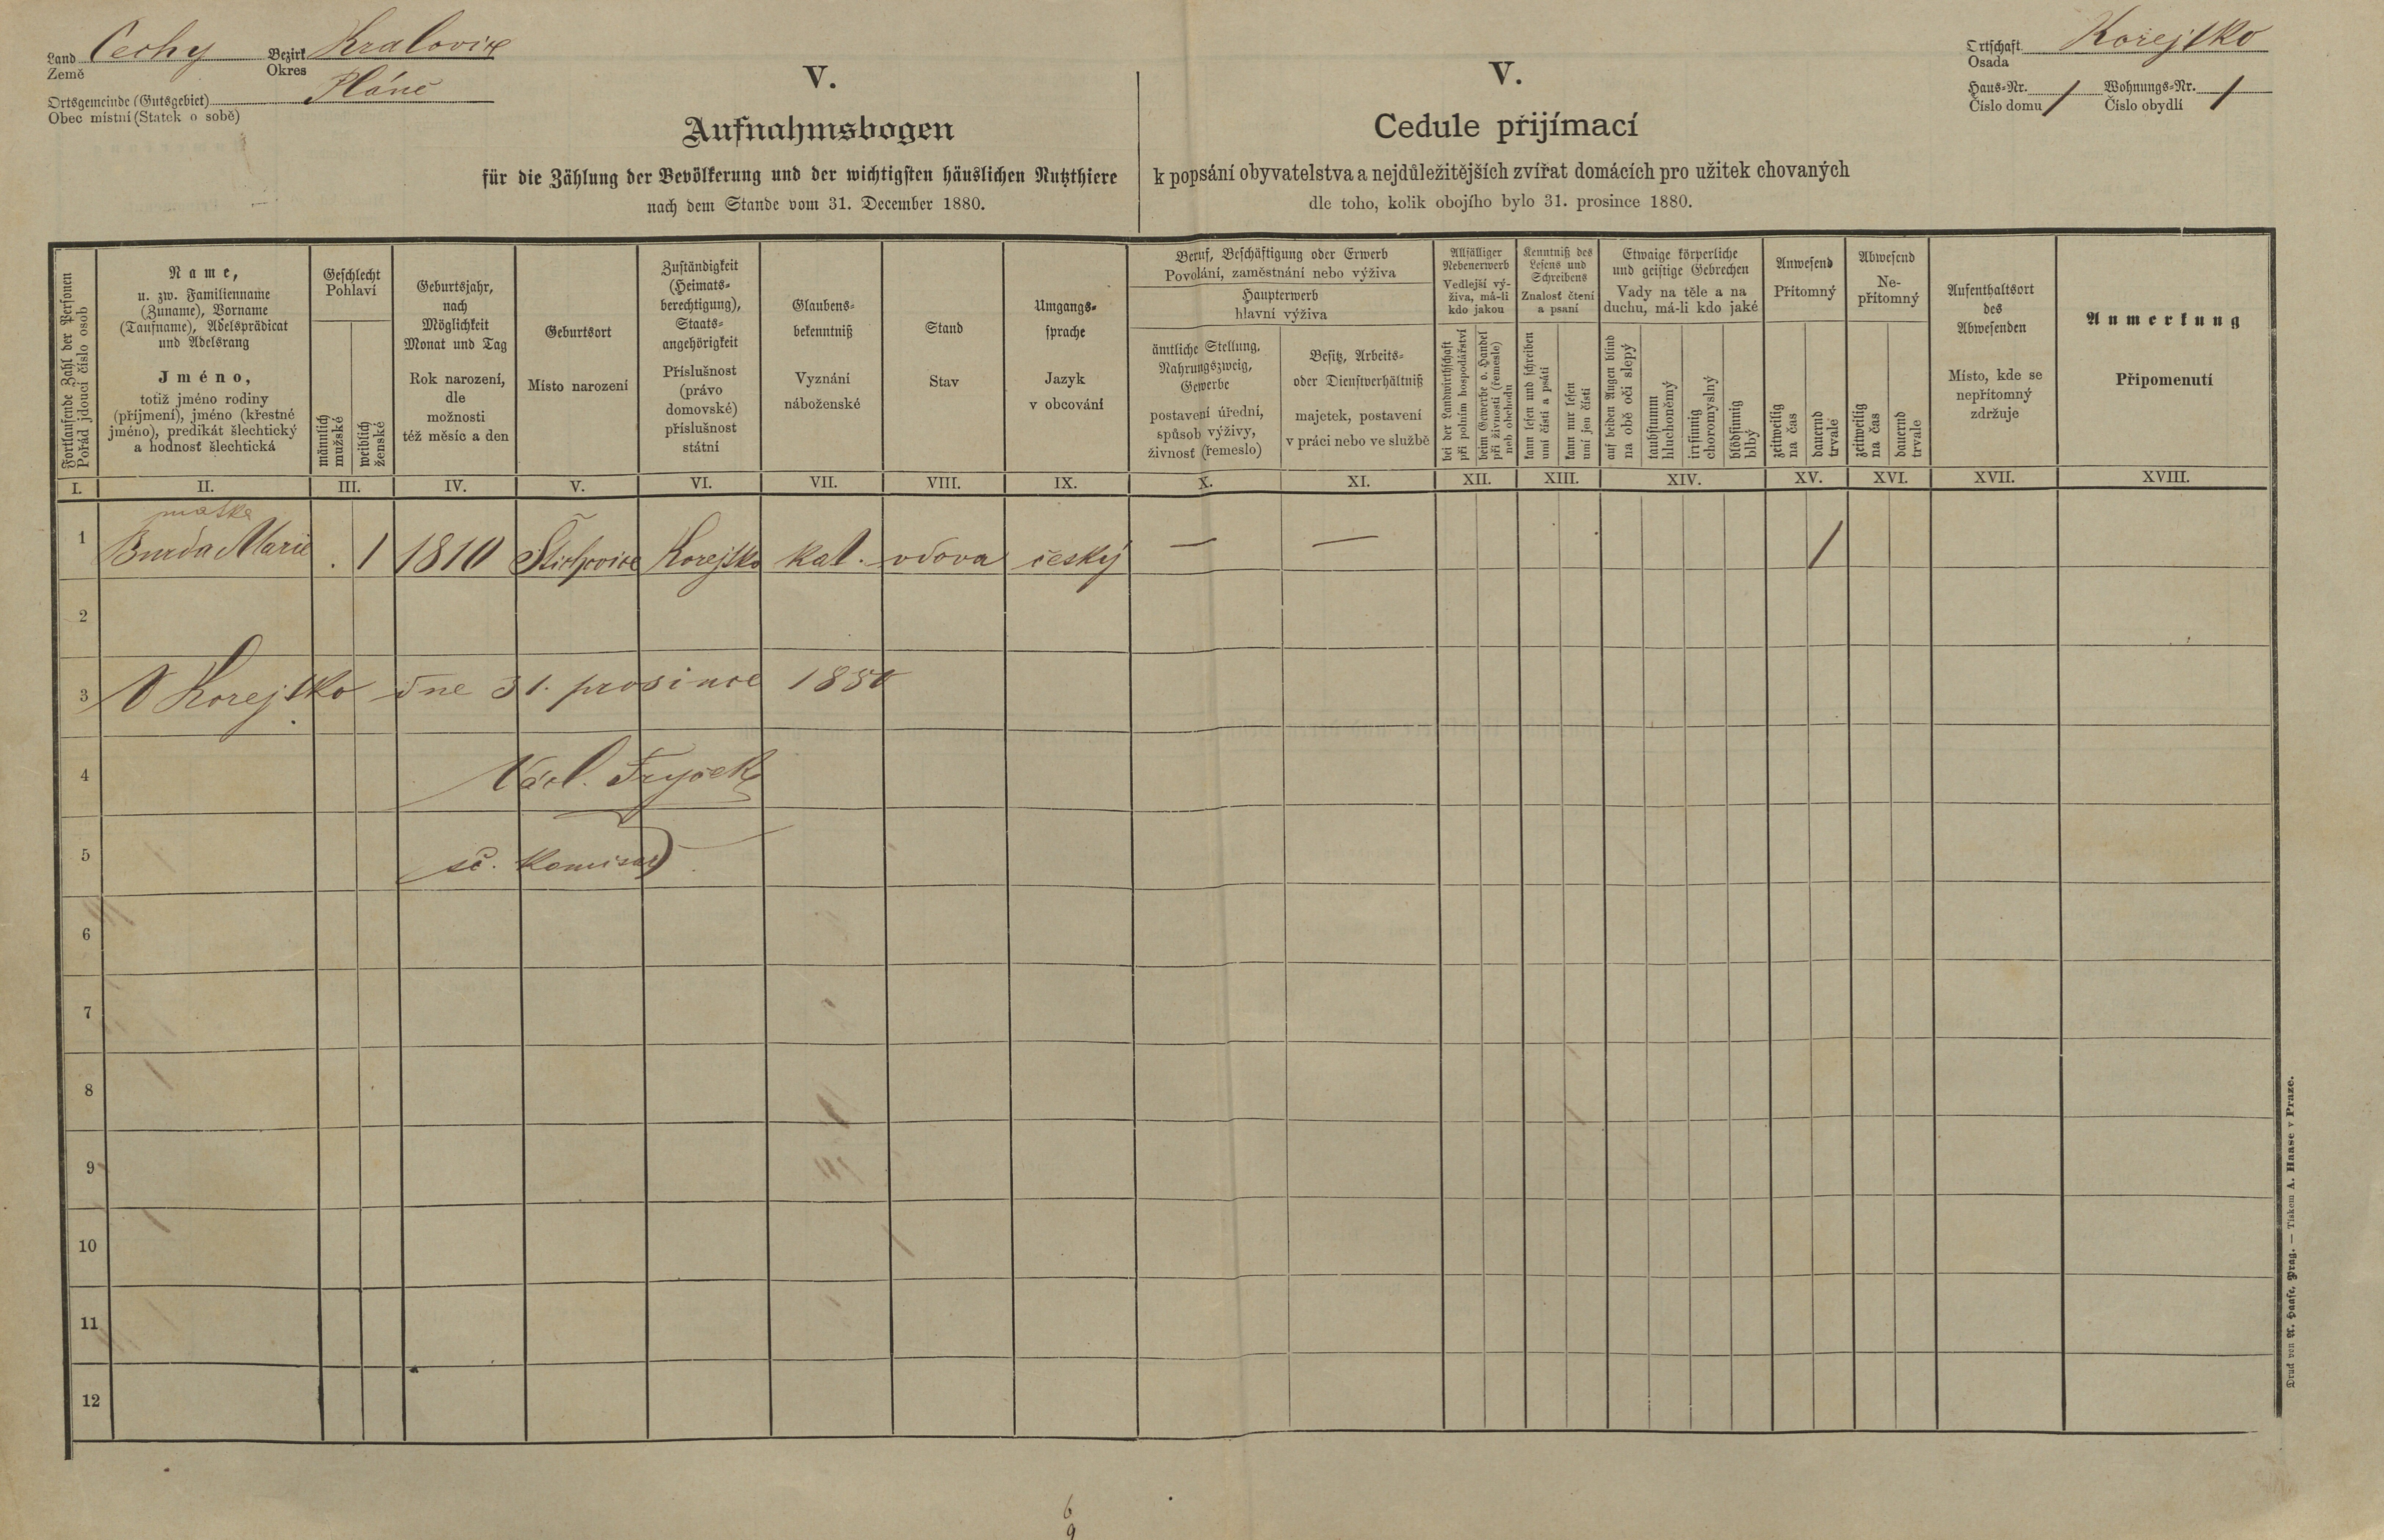 Land Čechy Bezirk Kralovice
Země Okres
Ortsgemeinde (Gutsgebiet) Pláně
Obec místní (Statek o sobě)
Ortschaft Kořejtko
Osada
Haus-Nr. 1 Wohnungs-Nr. 1
Číslo domu Číslo obydlí
V.
Aufnahmsbogen
für die Zählung der Bevölkerung und der wichtigsten häuslichen Nutzthiere
nach dem Stande vom 31. December 1880.
V.
Cedule přijímací
k popsání obyvatelstva a nejdůležitějších zvířat domácích pro užitek chovaných
dle toho, kolik obojího bylo 31. prosince 1880.
Fortlaufende Zahl der Personen
Pořád jdoucí číslo osob
Name,
u. zw. Familienname
(Zuname), Vorname
(Taufname), Adelsprädicat
und Adelsrang
Jméno,
totiž jméno rodiny
(příjmení), jméno (křestné
jméno), predikát šlechtický
a hodnosť šlechtická
Geschlecht
Pohlaví
männlich
mužské
weiblich
ženské
Geburtsjahr,
nach
Möglichkeit
Monat und Tag
Rok narození,
dle
možnosti
též měsíc a den
Geburtsort
Místo narození
Zuständigkeit
(Heimats-
berechtigung),
Staats-
angehörigkeit
Příslušnost
(právo
domovské)
příslušnost
státní
Glaubens-
bekenntniß
Vyznání
náboženské
Stand
Stav
Umgangs-
sprache
Jazyk
v obcování
Beruf, Beschäftigung oder Erwerb
Povolání, zaměstnání nebo výživa
Haupterwerb
hlavní výživa
ämtliche Stellung,
Nahrungszweig,
Gewerbe
postavení úřední,
spůsob výživy,
živnosť (řemeslo)
Besitz, Arbeits-
oder Dienstverhältniß
majetek, postavení
v práci nebo ve službě
Allfälliger
Nebenerwerb
Vedlejší vý-
živa, má-li
kdo jakou
bei der Landwirthschaft
při polním hospodářství
beim Gewerbe o. Handel
při živnosti (řemesle)
neb obchodu
Kenntniß des
Lesens und
Schreibens
Znalosť čtení
a psaní
kann lesen und schreiben
umí čísti a psáti
kann nur lesen
umí jen čísti
Etwaige körperliche
und geistige Gebrechen
Vady na těle a na
duchu, má-li kdo jaké
auf beiden Augen blind
na obě oči slepý
taubstumm
hluchoněmý
irrsinnig
choromyslný
blödsinnig
blbý
Anwesend
Přítomný
zeitweilig
na čas
dauernd
trvale
Abwesend
Ne-
přítomný
zeitweilig
na čas
dauernd
trvale
Aufenthaltsort
des
Abwesenden
Místo, kde se
nepřítomný
zdržuje
Anmerkung
Připomenutí
I. II. III. IV. V. VI. VII. VIII. IX. X. XI. XII. XIII. XIV. XV. XVI. XVII. XVIII.
matka
1 Burda Marie . 1 1810 Štichovice Korejtko kat. vdova český — — 1
2
3 V Korejtko dne 31. prosince 1880
4 Václ. Fryček
5 sč. komisař
6
7
8
9
10
11
12
Druck von A. Haase, Prag. — Tiskem A. Haase v Praze.
6
9